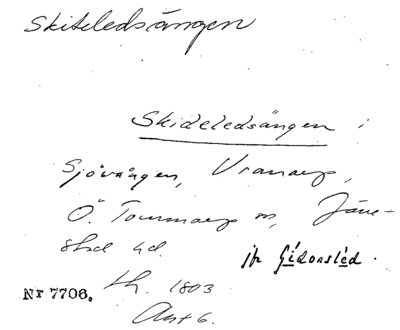 Skiteledsängen
Skideledsängen i
Sjövången, Vranarp,
Ö. Tommarp sn, Järre-
stad hd.
jfr Gidonsled.
Nr 7706. lh. 1803
Akt 6.